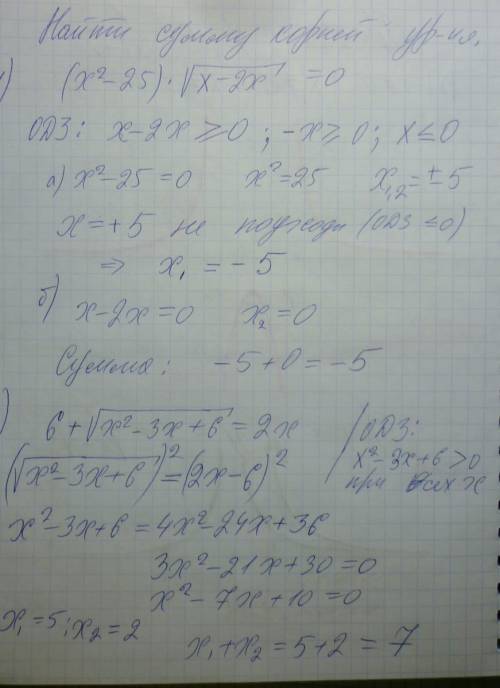 Найти сумму корней ур-ия.
) (x²-25)·√(x-2x) =0
ОДЗ: x-2x≥0 ; -x≥0; x≤0
а) x²-25=0 x²=25 x₁,₂=±5
x=+5 не подходи (ОДЗ ≤0)
⇒ x₁ = -5
б) x-2x=0 x₂=0
Сумма: -5+0=-5
) 6+√(x²-3x+6)=2x
ОДЗ:
x²-3x+6>0
при всех x
(√(x²-3x+6))²=(2x-6)²
x²-3x+6=4x²-24x+36
3x²-21x+30=0
x²-7x+10=0
x₁=5; x₂=2
x₁+x₂=5+2=7